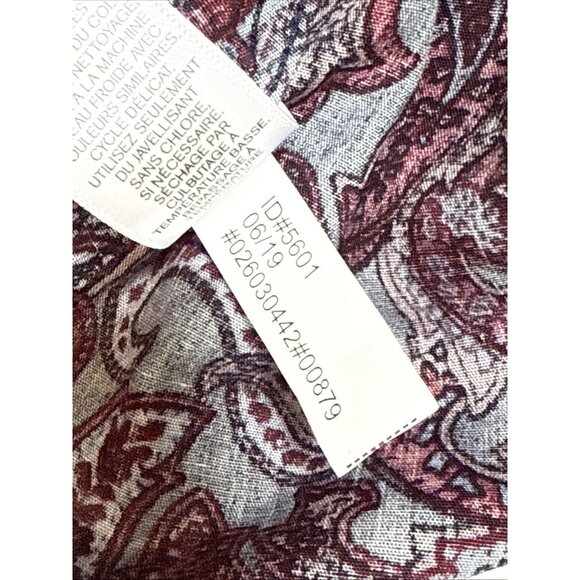 DU COL
NETTOYAGE.
À LA MACHINE
EAU FROIDE AVEC
COULEURS SIMILAIRES.
CYCLE DÉLICAT.
UTILISEZ SEULEMENT
DU JAVELLISANT
SANS CHLORE,
SI NÉCESSAIRE.
SÉCHAGE PAR
CULBUTAGE À
TEMPÉRATURE BASSE.
REPASSAGE À
ID#5601
06/19
#026030442#00879